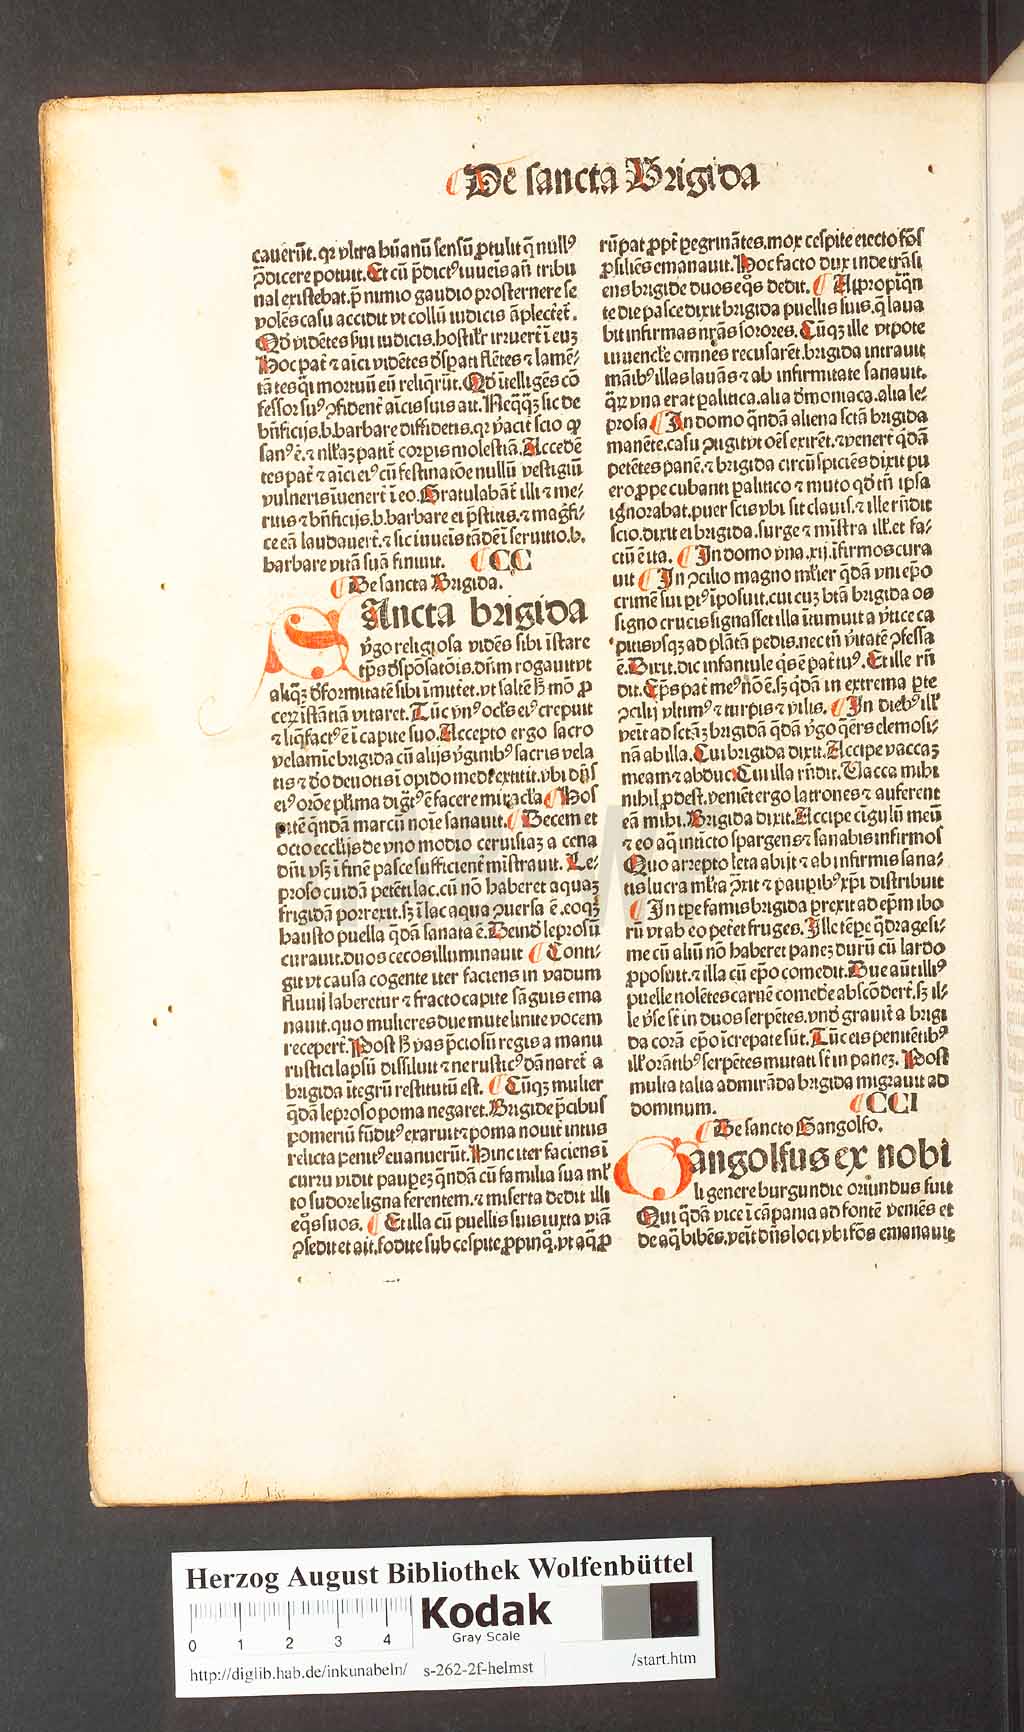 De sancta Brigida
cauerūt. qr vltra hūanū sensū ꝓtulit q̄ nullꝰ
p̄dicere potuit. Et cū p̄dictꝰ iuueīs añ tribu
nal existebat. p̄ nimio gaudio prosternere se
volēs casu accidit vt collū iudicis āplectet̄.
Qd̄ vidētes fui iudicis. hostilr̄ irruert̄ ī euʒ
Hoc pat̄ ⁊ aīci vidētes dsꝑati flētes ⁊ lamē-
tātes q̄i mortuū eū reliq̄rūt. Qd̄ ītelligēs cō
fessor suꝰ ꝯfident̄ aīcis suis ait. Neq̄q̄ʒ sic de
bn̄ficijs .b. barbare diffidetis. qr vacit scio ꝙ
sanꝰ ē. ⁊ nllaʒ patit̄ corpis molestiā. Accedē
tes pat̄ ⁊ aīci eiꝰ cū festinatōe nullū vestigiū
vulneris īuenert̄ ī eo. Gratulabāt̄ illi ⁊ me-
ritis ⁊ bn̄ficijs .b. barbare ei p̄stitis. ⁊ magn̄i-
ce eā laudauert̄. ⁊ sic iuueīs tādeī seruitio .b.
barbare vitā suā finiuit. CCC
De sancta Brigida.
SAncta brigida
v̄go religiosa vidēs sibi īstare
tp̄s dspōsatōis. dn̄m rogauit vt
aliq̄ʒ d̄formitatē sibi īmutet. vt saltē h̄ mō ꝓ
coꝝ īstātiā vitaret. Tūc vnꝰ oclꝰs eiꝰ crepuit
⁊ liq̄factꝰ ē ī capite suo. Accepto ergo sacro
velamie brigida cū alijs v̄ginibꝰ sacris vela
tis ⁊ d̄o deuotis ī opido medꝰ extitit. vbi dn̄s
eiꝰ orōe plima digt̄ꝰ ē facere miracla Hos
pitē q̄ndā marcū noīe sanauit. Decem et
octo ecclijs de vno modio ceruisiaʒ a cena
dn̄i vsqʒ ī finē pasce sufficient̄ mīstrauit. Le-
proso cuidā petēti lac. cū nō haberet aquaʒ
frigidā porrexit. sʒ ī lac aqua ꝯuersa ē. eoqʒ
hausto puella q̄dā sanata ē. Deind̄ leprosū
curauit. duos cecos illuminauit Conti-
git vt causa cogente iter faciens in vadum
fluuij laberetur ⁊ fracto capite sāguis ema
nauit. quo mulieres due mute linite vocem
recepert̄. Post h̄ vas p̄ciosū regis a manu
rustici lapsū dissiluit ⁊ ne rusticꝰ dānaret̄ a
brigida ītegrū restitutū est. Cūqʒ mulier
q̄dā leproso poma negaret. Brigide p̄cibus
pomeriū fūditꝰ exaruit ⁊ poma nouit intus
relicta penitꝰ euanuerūt. Hinc iter faciens ī
curru vidit pauperʒ q̄ndā cū familia sua ml̄
to sudore ligna ferentem. ⁊ miserta dedit illi
eq̄s suos. Et illa cū puellis suis iuxta viā
ꝯsedit et ait. fodite sub cespite ꝓpinqͦ. vt aq̄ ꝓ
rūpat ꝓpt̄ pegrinātes. mox cespite eiecto fōs
ꝓsiliēs emanauit. Hoc facto dux inde trāsi
ens brigide duos eq̄s dedit. Appropiq̄n
te die pasce dixit brigida puellis suis. q̄ laua
bit infirmas nr̄as sorores. Cūqʒ ille vtpote
iuuencle omnes recusarēt. brigida intrauit
manibꝰ illas lauās ⁊ ab infirmitate sanauit.
q̄rꝝ vna erat palitica. alia d̄moniaca. alia le-
prosa In domo q̄ndā aliena scta brigida
manēte. casu ꝯtigit vt oēs exirēt. ⁊ venert̄ q̄dā
petētes panē. ⁊ brigida circūspiciēs dixit pu
ero ꝓpe cubanti palitico ⁊ muto qd̄ tn̄ ipsa
ignorabat. puer scis vbi sit clauis. ⁊ ille rn̄dit
scio. dixit ei brigida. surge ⁊ mīstra ill̄. et fa-
ctū ē ita. In domo vna .xij. īfirmos cura
uit In ꝯcilio magno ml̄ier q̄dā vni ep̄o
crimē sui ptꝰ īposuit. cui cuʒ btā brigida os
signo crucis signasset illa ītumuit a v̄tice ca
pitis vsqʒ ad plātā pedis. nec tn̄ v̄itatē ꝯfessa
ē. Dixit. dic infantule q̄s ē pat̄ tuꝰ. Et ille rn̄
dit. Ep̄s pat̄ meꝰ nō ē. sʒ q̄dā in extrema pte
ꝯcilij vltimꝰ ⁊ turpis ⁊ vilis. In diebꝰ ill̄
veīt ad sctāʒ brigidā q̄dā v̄go q̄rēs elemosi-
nā ab illa. Cui brigida dixit. Accipe vaccaʒ
meam ⁊ abduc. Cui illa rn̄dit. Vacca mihi
nihil ꝓdest. veniēt ergo latrones ⁊ auferent
eā mihi. Brigida dixit. Accipe cīgulū meū
⁊ eo aq̄ intīcto spargens ⁊ sanabis infirmos
Quo arrepto leta abijt ⁊ ab infirmis sana-
tis lucra ml̄ta q̄rit ⁊ paupibꝰ xp̄i distribuit
In tpe famis brigida prexit ad ep̄m ibo
rū vt ab eo petet fruges. Ille tēpe q̄dragesi-
me cū aliū nō haberet panez durū cū lardo
ꝓposuit. ⁊ illa cū ep̄o comedit. Due aūt illiꝰ
puelle nolētes carnē comede abscōdert̄. sʒ il-
le v̄se st̄ in duos serpētes. vnd̄ grauit̄ a brigi
da corā ep̄o īcrepate sūt. Tūc eis penitētibꝰ
ill̄ orātibꝰ serpētes mutati st̄ in panez. Post
multa talia admirāda brigida migrauit ad
dominum. CCCI
De sancto Gangolfo.
Gangolfus ex nobi
li genere burgundie oriundus fuit
Qui q̄dā vice ī cāpania ad fontē veniēs et
de aq̄ bibēs. veīt dn̄s loci vbi fōs emanauit
Herzog August Bibliothek Wolfenbüttel
Kodak
Gray Scale
0 1 2 3 4
http://diglib.hab.de/inkunabeln/ s-262-2f-helmst /start.htm